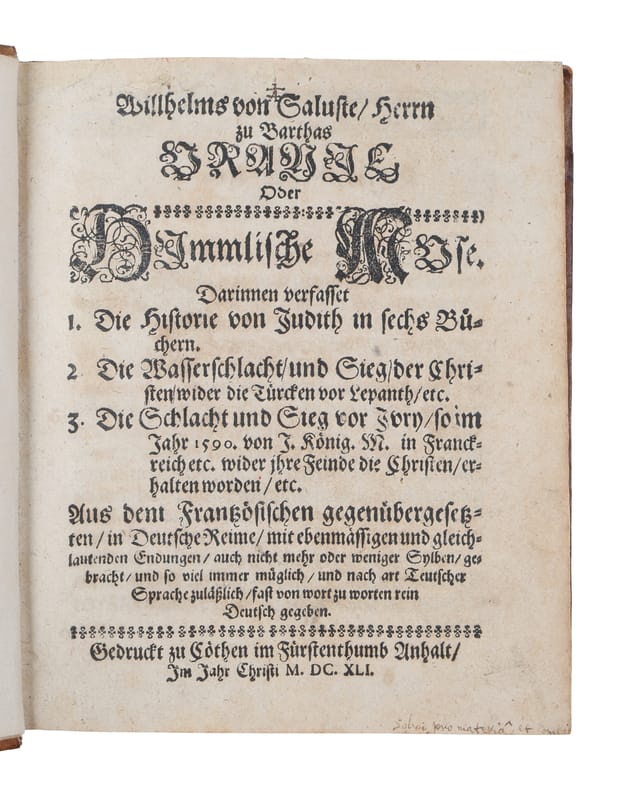 Willhelms von Saluste/ Herrn
zu Barthas
VRANJE
Oder
HJmmlische MUse.
Darinnen verfasset
1. Die Historie von Judith in sechs Bü-
chern.
2 Die Wasserschlacht/und Sieg/der Chri-
sten/wider die Türcken vor Lepanth/etc.
3. Die Schlacht und Sieg vor Jvry/so im
Jahr 1590. von J. König. M. in Franck-
reich etc. wider jhre Feinde die Christen/er-
halten worden/etc.
Aus dem Frantzösischen gegenübergesetz-
ten/in Deutsche Reime/mit ebenmässigen und gleich-
lautenden Endungen/auch nicht mehr oder weniger Sylben/ge-
bracht/und so viel immer müglich/und nach art Teutscher
Sprache zuläßlich/fast von wort zu worten rein
Deutsch gegeben.
Gedruckt zu Cöthen im Fürstenthumb Anhalt/
Im Jahr Christi M. DC. XLI.
pro materia et